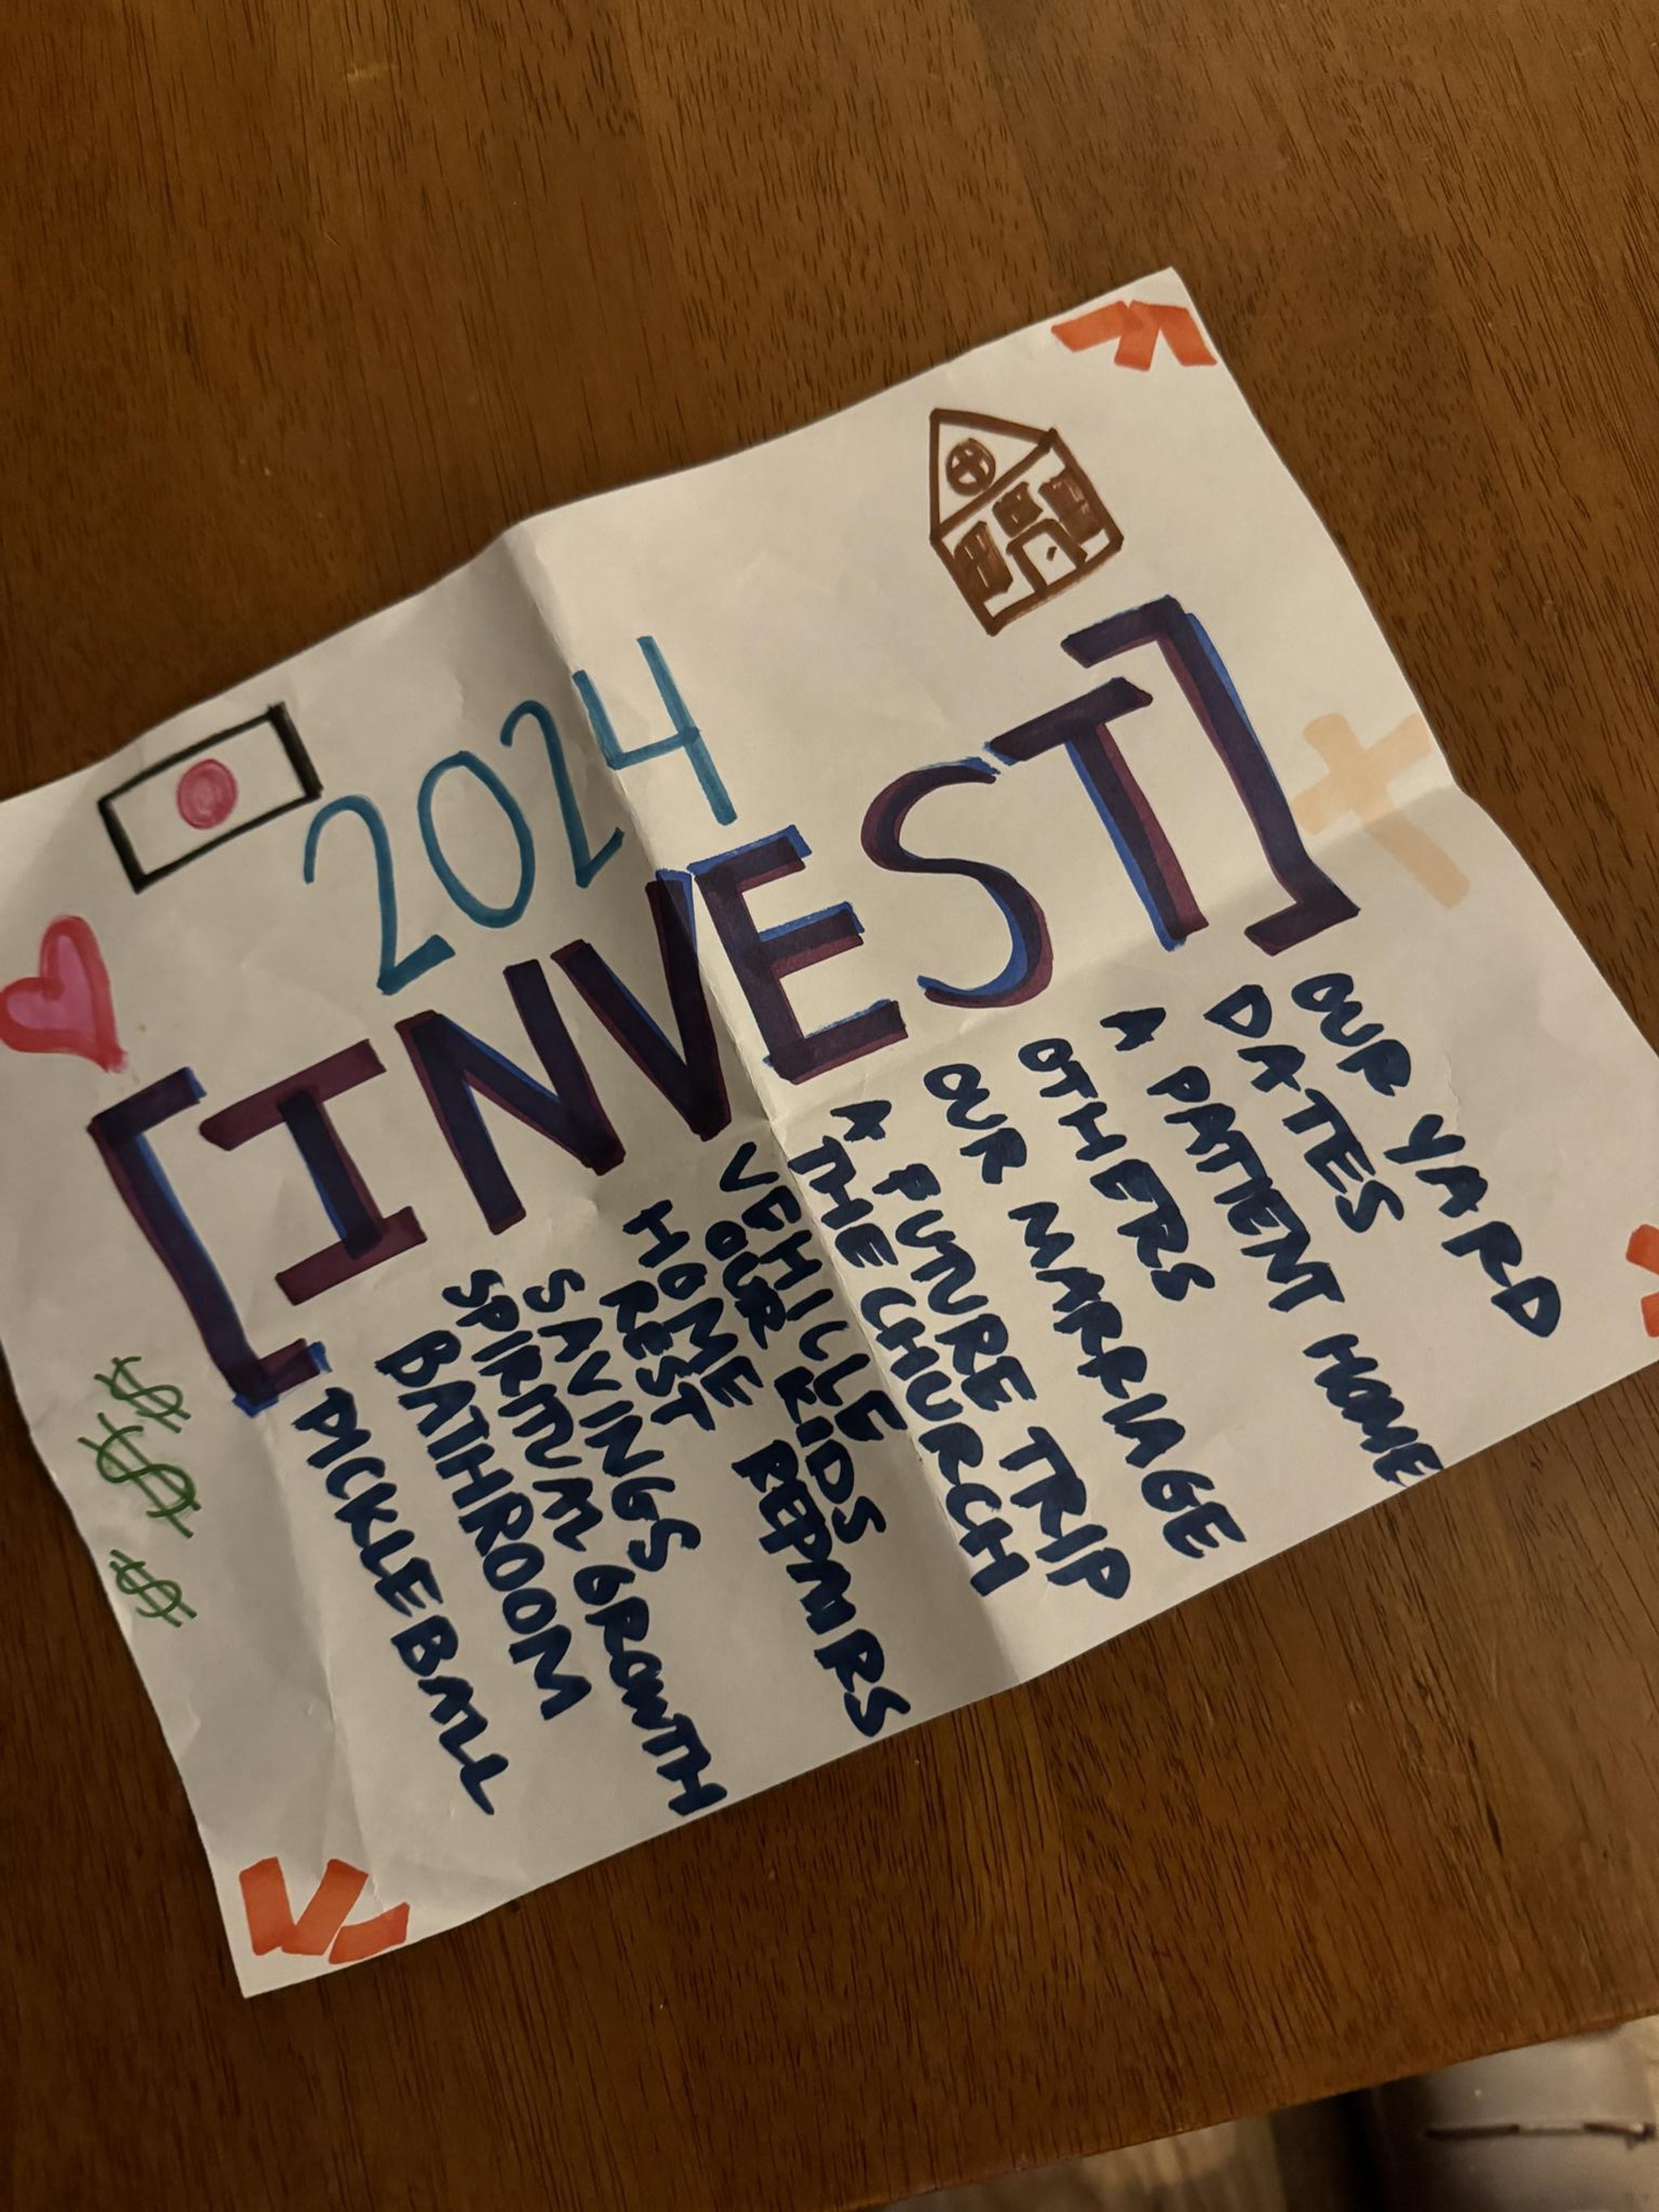 2024
[INVEST]
PICKLEBALL
BATHROOM
SPIRITUAL GROWTH
SAVINGS
REST
HOME REPAIRS
OUR KIDS
VEHICLE
THE CHURCH
A FUTURE TRIP
OUR MARRIAGE
OTHERS
A PATIENT HOME
DATES
OUR YARD
$
$
$